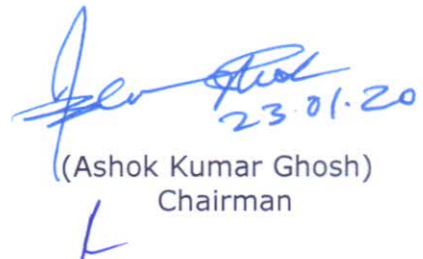 23.01.20
(Ashok Kumar Ghosh)
Chairman